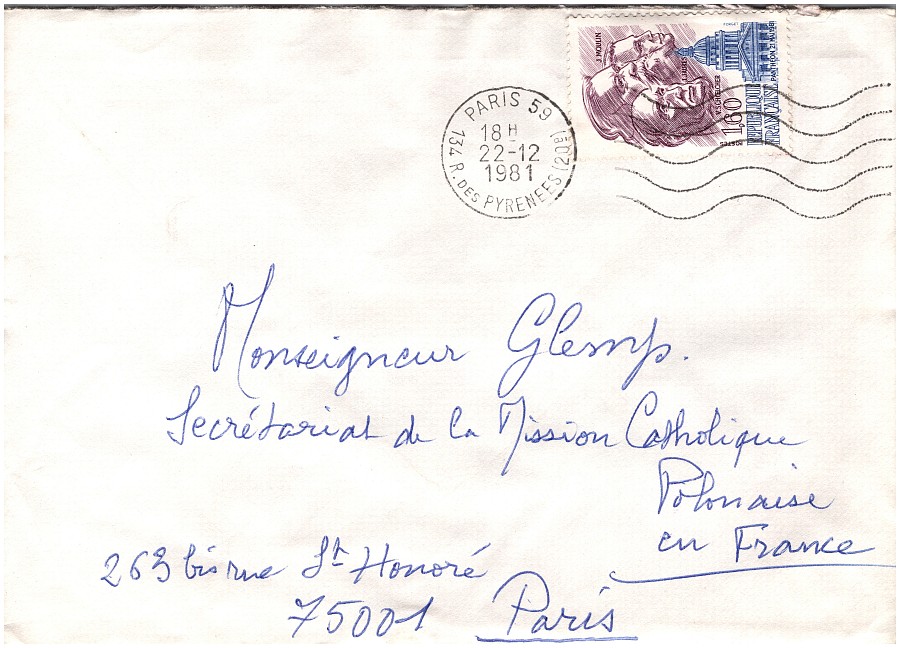 J. MOULIN
J. JAURES
V. SCHOELCHER
FORGET
PANTHEON 21 MAI 1981
1,60
REPUBLIQUE
FRANÇAISE
POSTES
PARIS 59 (20E)
18H
22-12
1981
134 R. DES PYRENEES
Monseigneur Glemp.
Secrétariat de la Mission Catholique
Polonaise
en France
263 bis rue St Honoré
75001 Paris